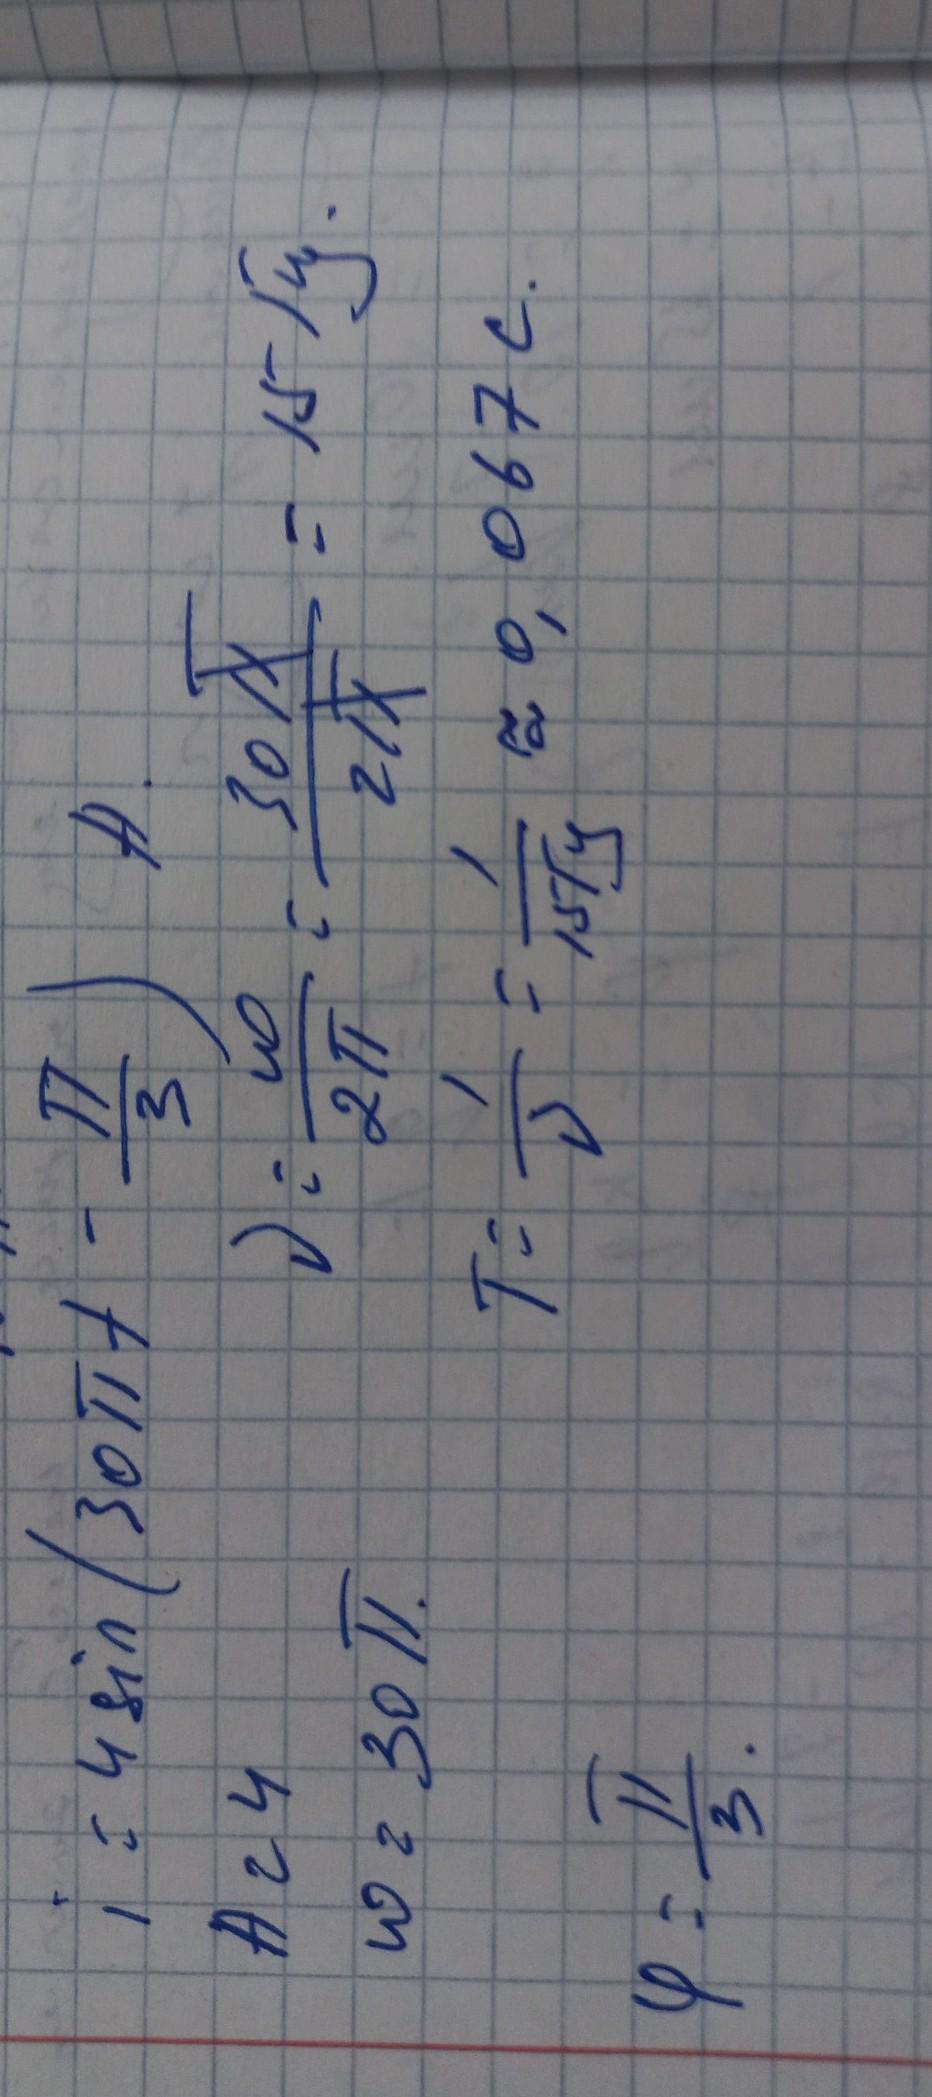 i = 4 sin(30πt - π/3) A.
A = 4
ν = ω/2π = 30π/2π = 15 Гц.
ω = 30π.
T = 1/ν = 1/15Гц ≈ 0,067 с.
φ = π/3.